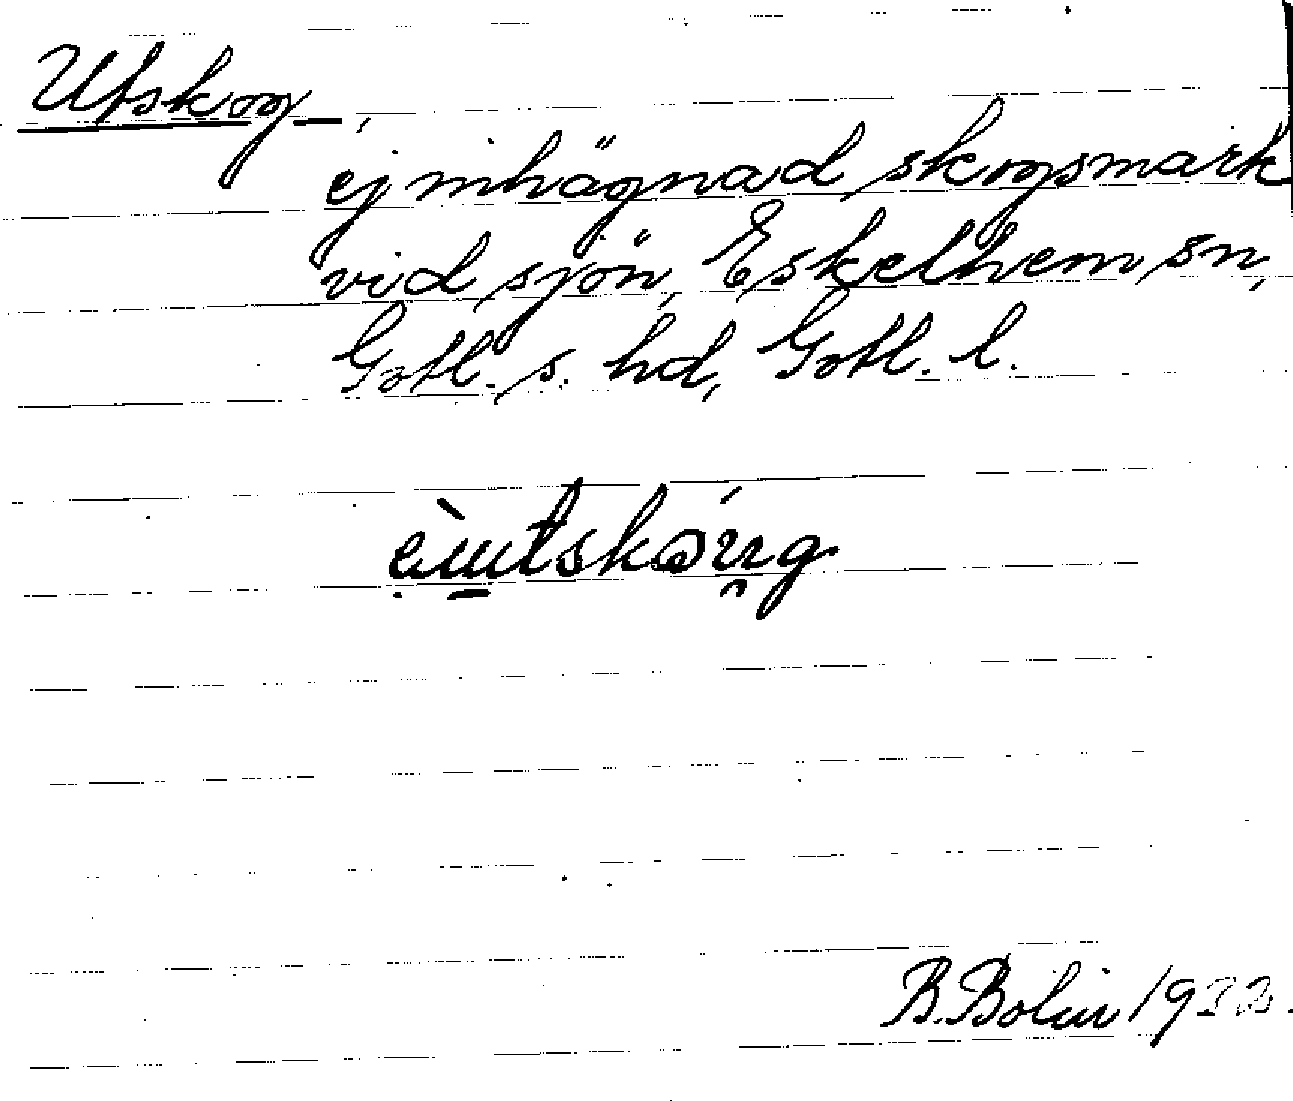 Utskog,
ej inhägnad skogsmark
vid sjön, Eskelhem sn,
Gotl. s. hd, Gotl. l.
B. Bolin 1933.